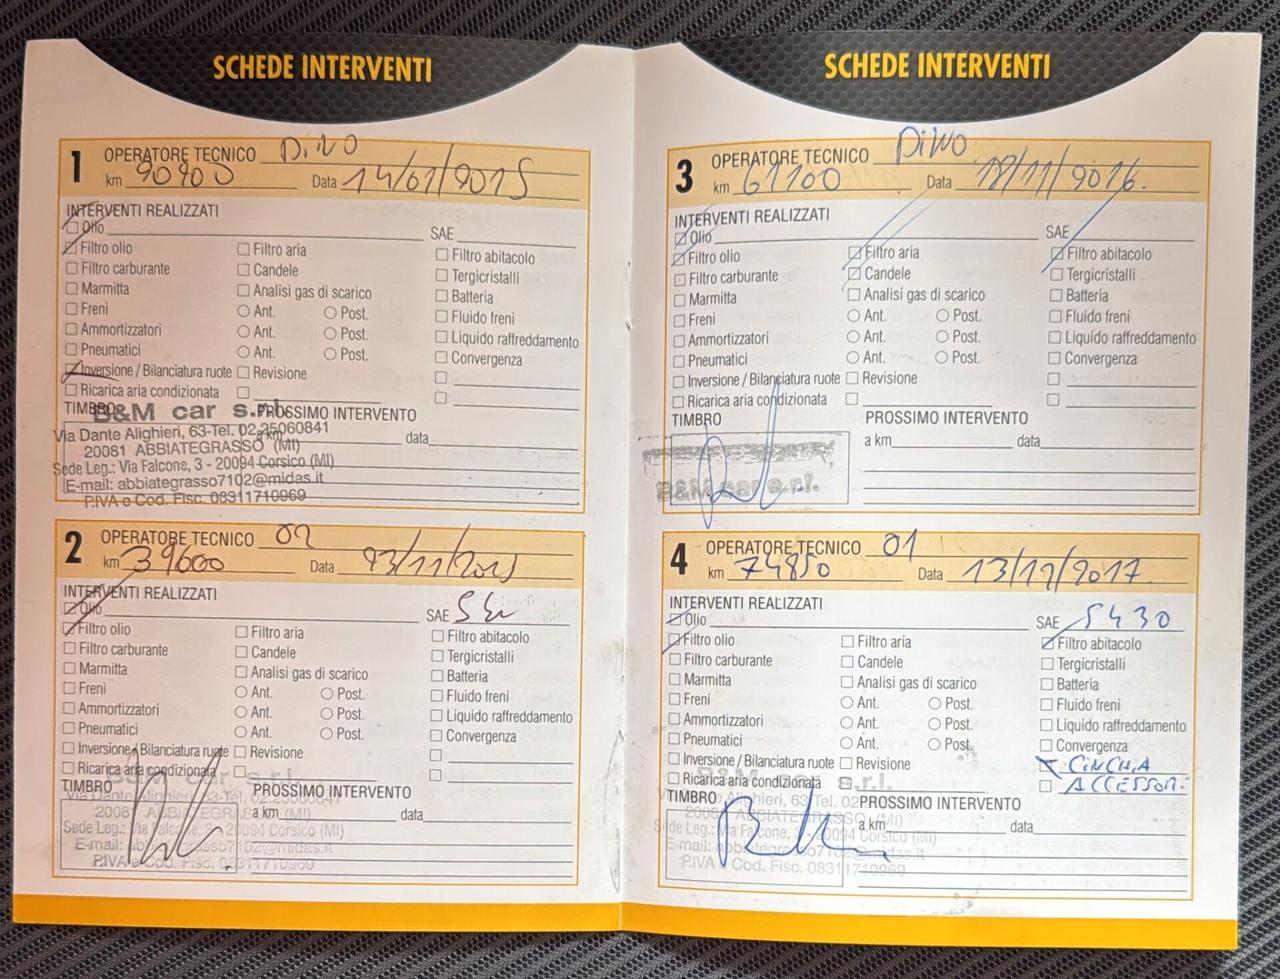 SCHEDE INTERVENTI
1 OPERATORE TECNICO DiNO
km 90900 Data 14/01/9015
INTERVENTI REALIZZATI
Olio SAE
Filtro olio Filtro aria Filtro abitacolo
Filtro carburante Candele Tergicristalli
Marmitta Analisi gas di scarico Batteria
Freni Ant. Post. Fluido freni
Ammortizzatori Ant. Post. Liquido raffreddamento
Pneumatici Ant. Post. Convergenza
Inversione / Bilanciatura ruote Revisione
Ricarica aria condizionata
TIMBRO PROSSIMO INTERVENTO
a km data
B&M car s.r.l.
Via Dante Alighieri, 63-Tel. 02.25060841
20081 ABBIATEGRASSO (MI)
Sede Leg.: Via Falcone, 3 - 20094 Corsico (MI)
E-mail: abbiategrasso7102@midas.it
P.IVA e Cod. Fisc. 08311710969
2 OPERATORE TECNICO 02
km 39600 Data 93/11/2015
INTERVENTI REALIZZATI
Olio SAE
Filtro olio Filtro aria Filtro abitacolo
Filtro carburante Candele Tergicristalli
Marmitta Analisi gas di scarico Batteria
Freni Ant. Post. Fluido freni
Ammortizzatori Ant. Post. Liquido raffreddamento
Pneumatici Ant. Post. Convergenza
Inversione / Bilanciatura ruote Revisione
Ricarica aria condizionata
TIMBRO PROSSIMO INTERVENTO
a km data
B&M car s.r.l.
Via Dante Alighieri, 63-Tel. 02.25060841
20081 ABBIATEGRASSO (MI)
Sede Leg.: Via Falcone, 3 - 20094 Corsico (MI)
E-mail: abbiategrasso7102@midas.it
P.IVA e Cod. Fisc. 08311710969
SCHEDE INTERVENTI
3 OPERATORE TECNICO DiNO
km 61100 Data 18/11/9016.
INTERVENTI REALIZZATI
Olio SAE
Filtro olio Filtro aria Filtro abitacolo
Filtro carburante Candele Tergicristalli
Marmitta Analisi gas di scarico Batteria
Freni Ant. Post. Fluido freni
Ammortizzatori Ant. Post. Liquido raffreddamento
Pneumatici Ant. Post. Convergenza
Inversione / Bilanciatura ruote Revisione
Ricarica aria condizionata
TIMBRO PROSSIMO INTERVENTO
a km data
B&M car s.r.l.
4 OPERATORE TECNICO 01
km 74850 Data 13/12/2017
INTERVENTI REALIZZATI
Olio SAE 5W30
Filtro olio Filtro aria Filtro abitacolo
Filtro carburante Candele Tergicristalli
Marmitta Analisi gas di scarico Batteria
Freni Ant. Post. Fluido freni
Ammortizzatori Ant. Post. Liquido raffreddamento
Pneumatici Ant. Post. Convergenza
Inversione / Bilanciatura ruote Revisione CINGHIA
Ricarica aria condizionata ACCESSORI
TIMBRO PROSSIMO INTERVENTO
a km data
B&M car s.r.l.
Alighieri, 63 Tel. 02
Sede Leg.: Via Falcone, 3 20094 Corsico (MI)
E-mail: abbiategrasso7102@midas.it
P.IVA e Cod. Fisc. 08311710969